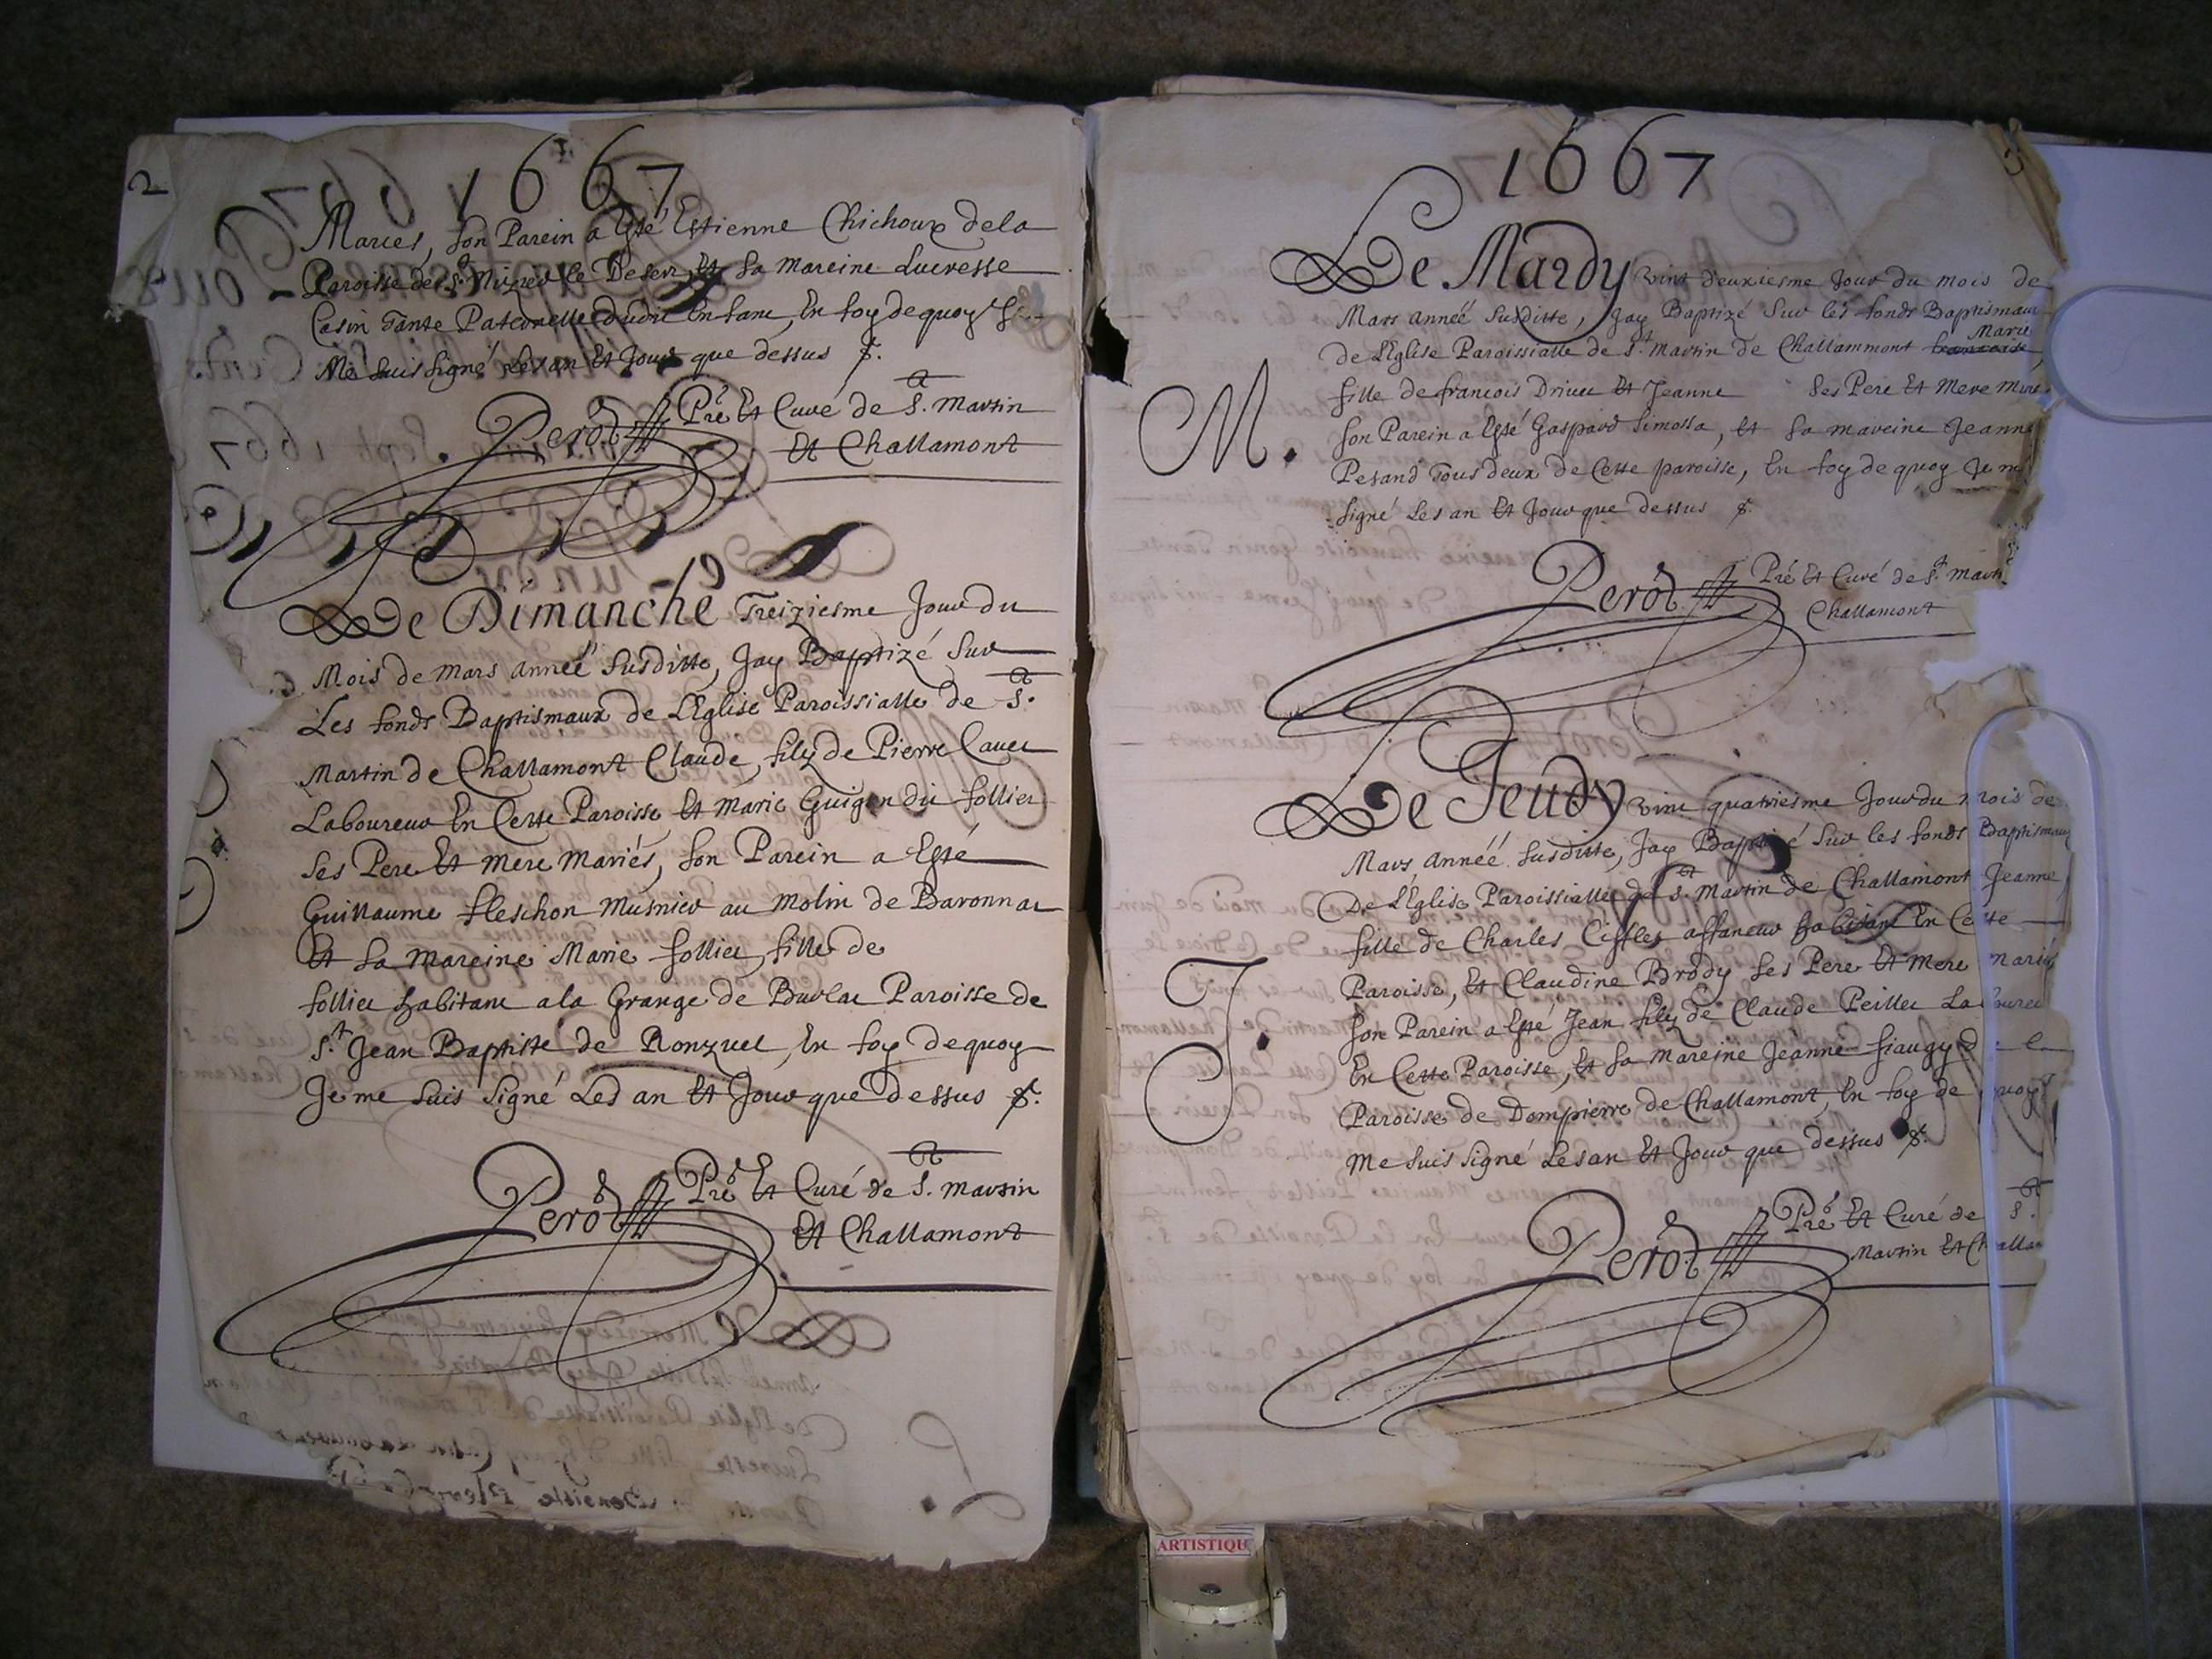 2
1667
Maries, son Parein a Esté Estienne Chichoux dela
Paroisse de St. le Desert, Et sa mareine Lucresse
Casin Tante Paternelle dudit Enfant, En foy dequoy
Me suis signé Les an Et Jour que dessus
Perod Pre Et Curé de St. Martin
Et Challamont
Le Dimanche Treiziesme Jour du
Mois de Mars année susditte, Jay Baptizé sur
Les fonds Baptismaux de L'Eglise Paroissialle de St.
Martin de Challamont Claude, filz de Pierre
Laboureur En Cette Paroisse Et Marie Guigon dit follier
ses Pere Et mere Mariés, son Parein a Esté
Guillaume fleschon musnier au molin de
Et sa mareine Marie follier, fille de
follier habitant a la Grange de Paroisse de
St. Jean Baptiste de Ronzuel, En foy dequoy
Je me suis signé Les an Et Jour que dessus
Perod Pre Et Curé de St. Martin
Et Challamont
3
1667
Le Mardy vint deuxiesme Jour du mois de
Mars année susditte, Jay Baptizé sur les fonds Baptismaux
Marie
de L'Eglise Paroissialle de St. Martin de Challammont
fille de francois Drivet Et Jeanne ses Pere Et Mere
M.
son Parein a Esté Gaspard Simossa, Et sa mareine Jeanne
Pesand Tous deux de Cette paroisse, En foy de quoy Je
signé Les an Et Jour que dessus
Perod Pre Et Curé de St. Mart
Challamont
Le Jeudy vint quatriesme Jour du mois de
Mars année susditte, Jay Baptizé sur les fonds Baptismaux
De L'Eglise Paroissialle de St. Martin de Challamont Jeanne
fille de Charles affaneur habitant En Cette
J.
Paroisse, Et Claudine Brody ses Pere Et mere mariés
son Parein a Esté Jean filz de Claude Peillet
En Cette Paroisse, Et sa mareine Jeanne de la
Paroisse de Dompierre de Challamont, En foy de quoy
me suis signé Les an Et Jour que dessus
Perod Pre Et Curé de St.
Martin Et Challa
ARTISTIQU